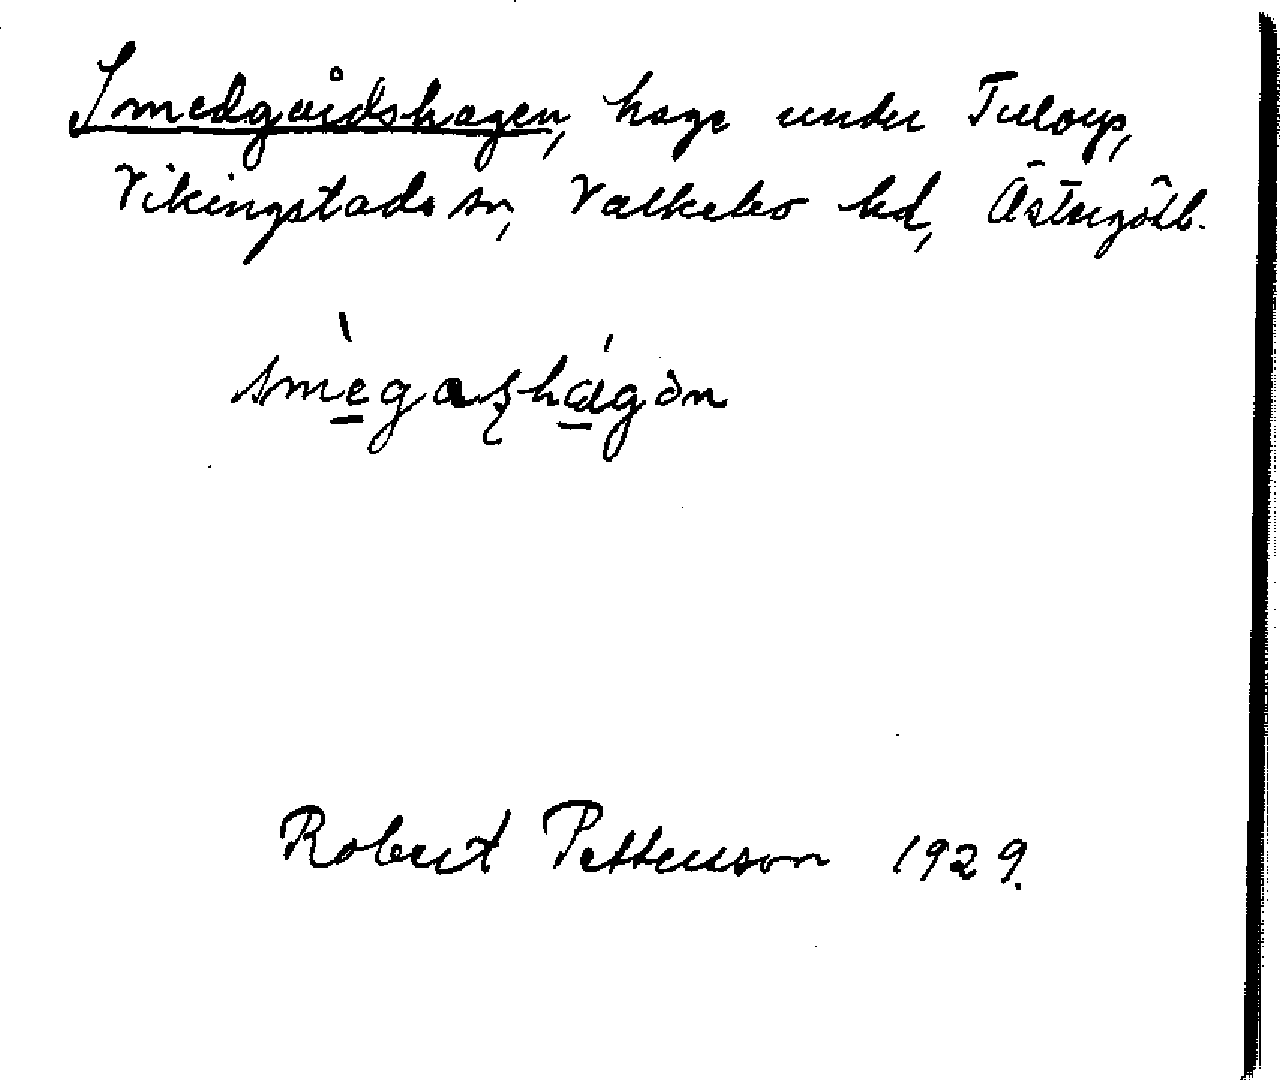 Smedgårdshagen, hage under Tuloup,
Vikingstads sn, Valkebo hd, Östergötl.
smègaʂhágən
Robert Pettersson 1929.